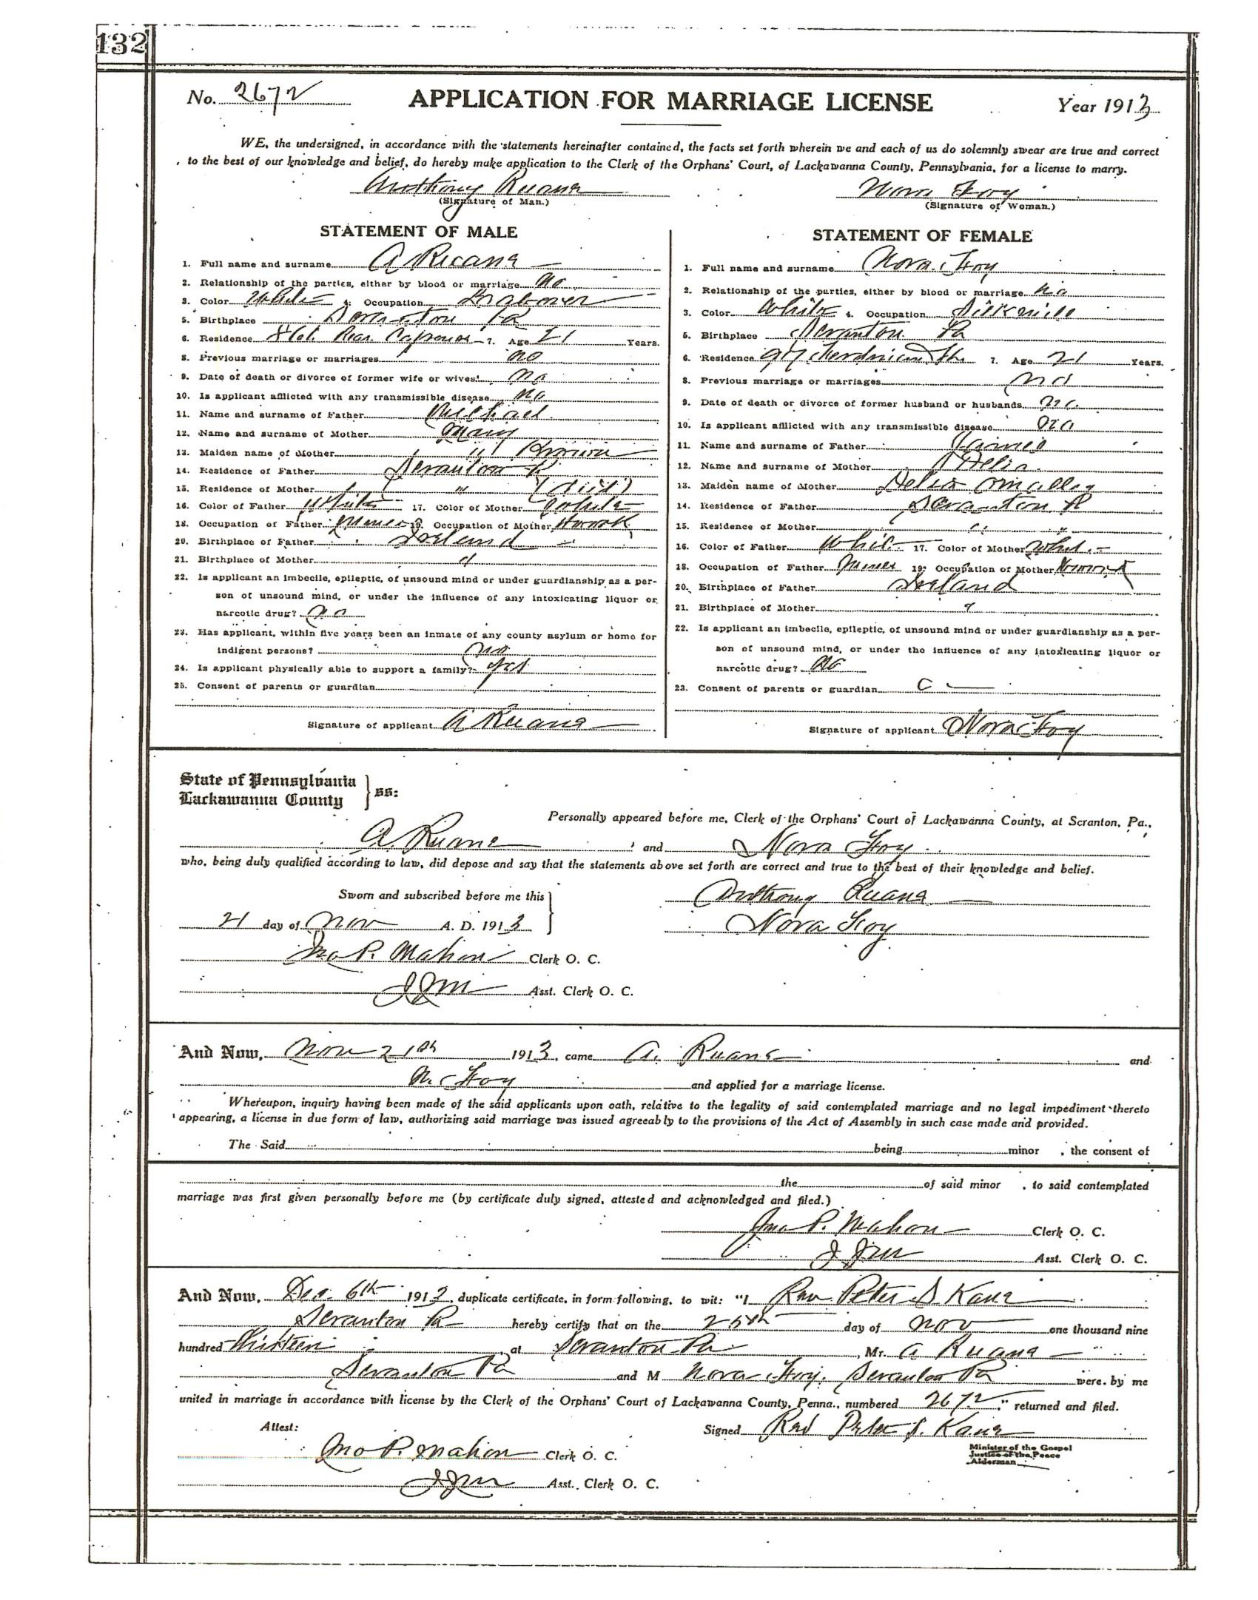 132
No. 2672 APPLICATION FOR MARRIAGE LICENSE Year 1913
WE, the undersigned, in accordance with the statements hereinafter contained, the facts set forth wherein we and each of us do solemnly swear are true and correct
to the best of our knowledge and belief, do hereby make application to the Clerk of the Orphans' Court, of Lackawanna County, Pennsylvania, for a license to marry.
Anthony Ruane Nora Foy
(Signature of Man.) (Signature of Woman.)
STATEMENT OF MALE
1. Full name and surname A Ruane
2. Relationship of the parties, either by blood or marriage No
3. Color White 4. Occupation Laborer
5. Birthplace Scranton Pa
6. Residence 7. Age 21 Years.
8. Previous marriage or marriages no
9. Date of death or divorce of former wife or wives no
10. Is applicant afflicted with any transmissible disease no
11. Name and surname of Father Michael
12. Name and surname of Mother Mary
13. Maiden name of Mother "
14. Residence of Father Scranton Pa
15. Residence of Mother "
16. Color of Father White 17. Color of Mother White
18. Occupation of Father Miner 19. Occupation of Mother Housewk
20. Birthplace of Father Ireland
21. Birthplace of Mother "
22. Is applicant an imbecile, epileptic, of unsound mind or under guardianship as a per-
son of unsound mind, or under the influence of any intoxicating liquor or
narcotic drug? no
23. Has applicant, within five years been an inmate of any county asylum or home for
indigent persons? no
24. Is applicant physically able to support a family? yes
25. Consent of parents or guardian
Signature of applicant A Ruane
STATEMENT OF FEMALE
1. Full name and surname Nora Foy
2. Relationship of the parties, either by blood or marriage no
3. Color White 4. Occupation Silkmill
5. Birthplace Scranton Pa
6. Residence 7. Age 21 Years.
8. Previous marriage or marriages no
9. Date of death or divorce of former husband or husbands no
10. Is applicant afflicted with any transmissible disease no
11. Name and surname of Father James
12. Name and surname of Mother Delia
13. Maiden name of Mother Delia Omalley
14. Residence of Father Scranton Pa
15. Residence of Mother "
16. Color of Father White 17. Color of Mother White
18. Occupation of Father Miner 19. Occupation of Mother Housewk
20. Birthplace of Father Ireland
21. Birthplace of Mother "
22. Is applicant an imbecile, epileptic, of unsound mind or under guardianship as a per-
son of unsound mind, or under the influence of any intoxicating liquor or
narcotic drug? No
23. Consent of parents or guardian
Signature of applicant Nora Foy
State of Pennsylvania
Lackawanna County } ss:
Personally appeared before me, Clerk of the Orphans' Court of Lackawanna County, at Scranton, Pa.,
A Ruane and Nora Foy
who, being duly qualified according to law, did depose and say that the statements above set forth are correct and true to the best of their knowledge and belief.
Sworn and subscribed before me this Anthony Ruane
21 day of Nov A. D. 1913 Nora Foy
Jno P. Mahon Clerk O. C.
JJM Asst. Clerk O. C.
And Now, Nov 21st 1913, came A. Ruane and
N. Foy and applied for a marriage license.
Whereupon, inquiry having been made of the said applicants upon oath, relative to the legality of said contemplated marriage and no legal impediment thereto
appearing, a license in due form of law, authorizing said marriage was issued agreeably to the provisions of the Act of Assembly in such case made and provided.
The Said being minor , the consent of
the of said minor , to said contemplated
marriage was first given personally before me (by certificate duly signed, attested and acknowledged and filed.)
Jno P. Mahon Clerk O. C.
JJM Asst. Clerk O. C.
And Now, Dec. 6th 1913, duplicate certificate, in form following, to wit: "I Rev Peter S Kane
Scranton Pa hereby certify that on the 25th day of Nov one thousand nine
hundred thirteen, at Scranton Pa, Mr. A Ruane
Scranton Pa and M Nora Foy, Scranton Pa were by me
united in marriage in accordance with license by the Clerk of the Orphans' Court of Lackawanna County, Penna., numbered 2672," returned and filed.
Attest: Signed Rev Peter S. Kane
Jno P. Mahon Clerk O. C. Minister of the Gospel
Justice of the Peace
Alderman
JJM Asst. Clerk O. C.